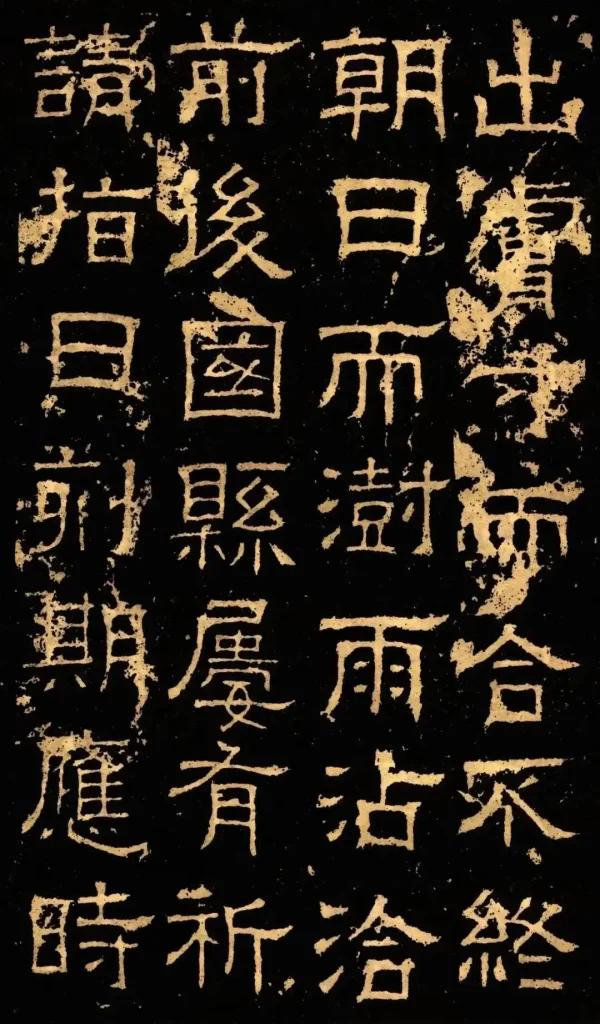 出膚寸而合不終
朝日而澍雨沾洽
前後國縣屢有祈
請指日刻期應時